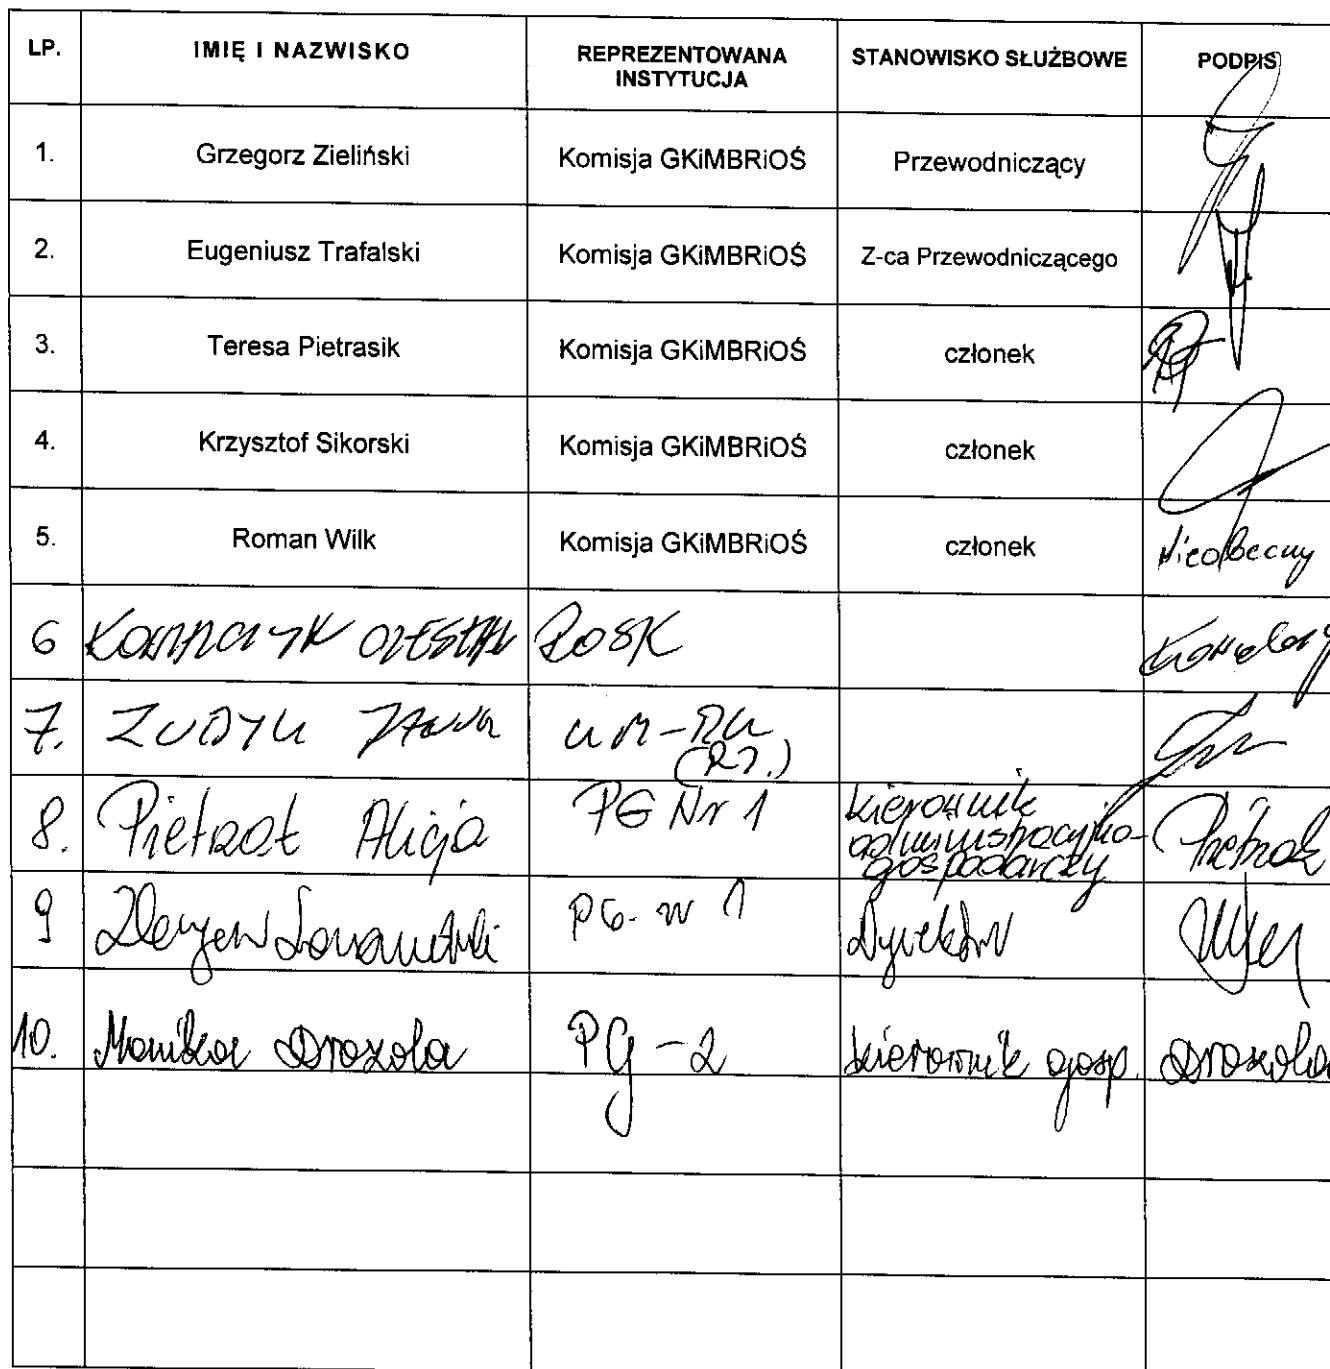 LP. IMIĘ I NAZWISKO REPREZENTOWANA INSTYTUCJA STANOWISKO SŁUŻBOWE PODPIS
1. Grzegorz Zieliński Komisja GKiMBRiOŚ Przewodniczący
2. Eugeniusz Trafalski Komisja GKiMBRiOŚ Z-ca Przewodniczącego
3. Teresa Pietrasik Komisja GKiMBRiOŚ członek
4. Krzysztof Sikorski Komisja GKiMBRiOŚ członek
5. Roman Wilk Komisja GKiMBRiOŚ członek Nieobecny
6
7.
8. Pietrzak Alicja PG Nr 1 kierownik administracyjno-gospodarczy Pietrzak
9 PG. nr 1 Dyrektor
10. Monika Drozda PG-2 kierownik gosp. Drozda